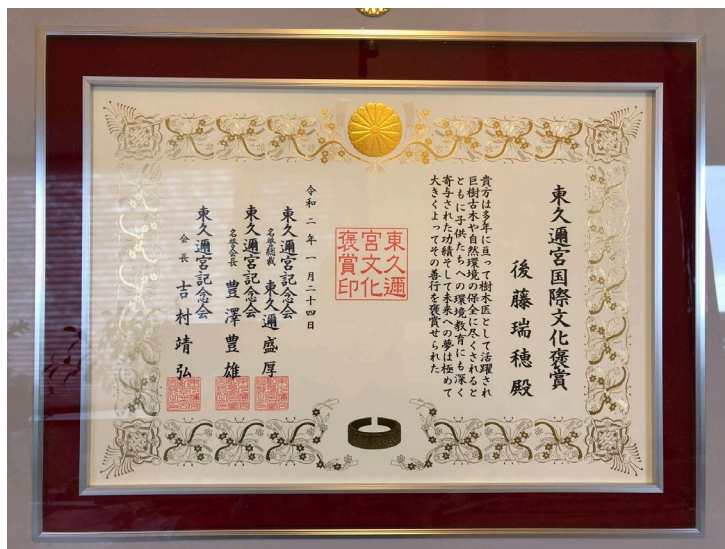 東久邇宮国際文化褒賞
後藤瑞穂殿
貴方は多年に亘って樹木医として活躍され
巨樹古木や自然環境の保全に尽くされると
ともに子供たちへの環境教育にも深く
寄与された功績そして未来への夢は極めて
大きくよってその善行を褒賞せられた
東久邇
宮文化
褒賞印
令和二年一月二十四日
東久邇宮記念会
名誉総裁 東久邇盛厚
東久邇宮記念会
名誉会長 豊澤豊雄
東久邇宮記念会
会長 吉村靖弘